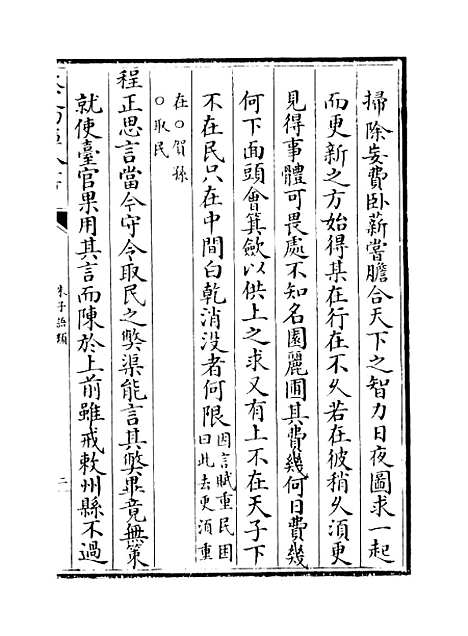 掃除妄費卧薪嘗膽合天下之智力日夜圖求一起
而更新之方始得某在行在不乆若在彼稍乆須更
見得事體可畏處不知名園麗圃其費幾何日費幾
何下面頭會箕歛以供上之求又有上不在天子下
不在民只在中間白乾消没者何限因言賦重民困
曰此去更須重
在○賀孫
○取民
程正思言當今守令取民之弊渠能言其弊畢竟無䇿
就使臺官果用其言而陳於上前雖戒敕州縣不過
朱子語類
二